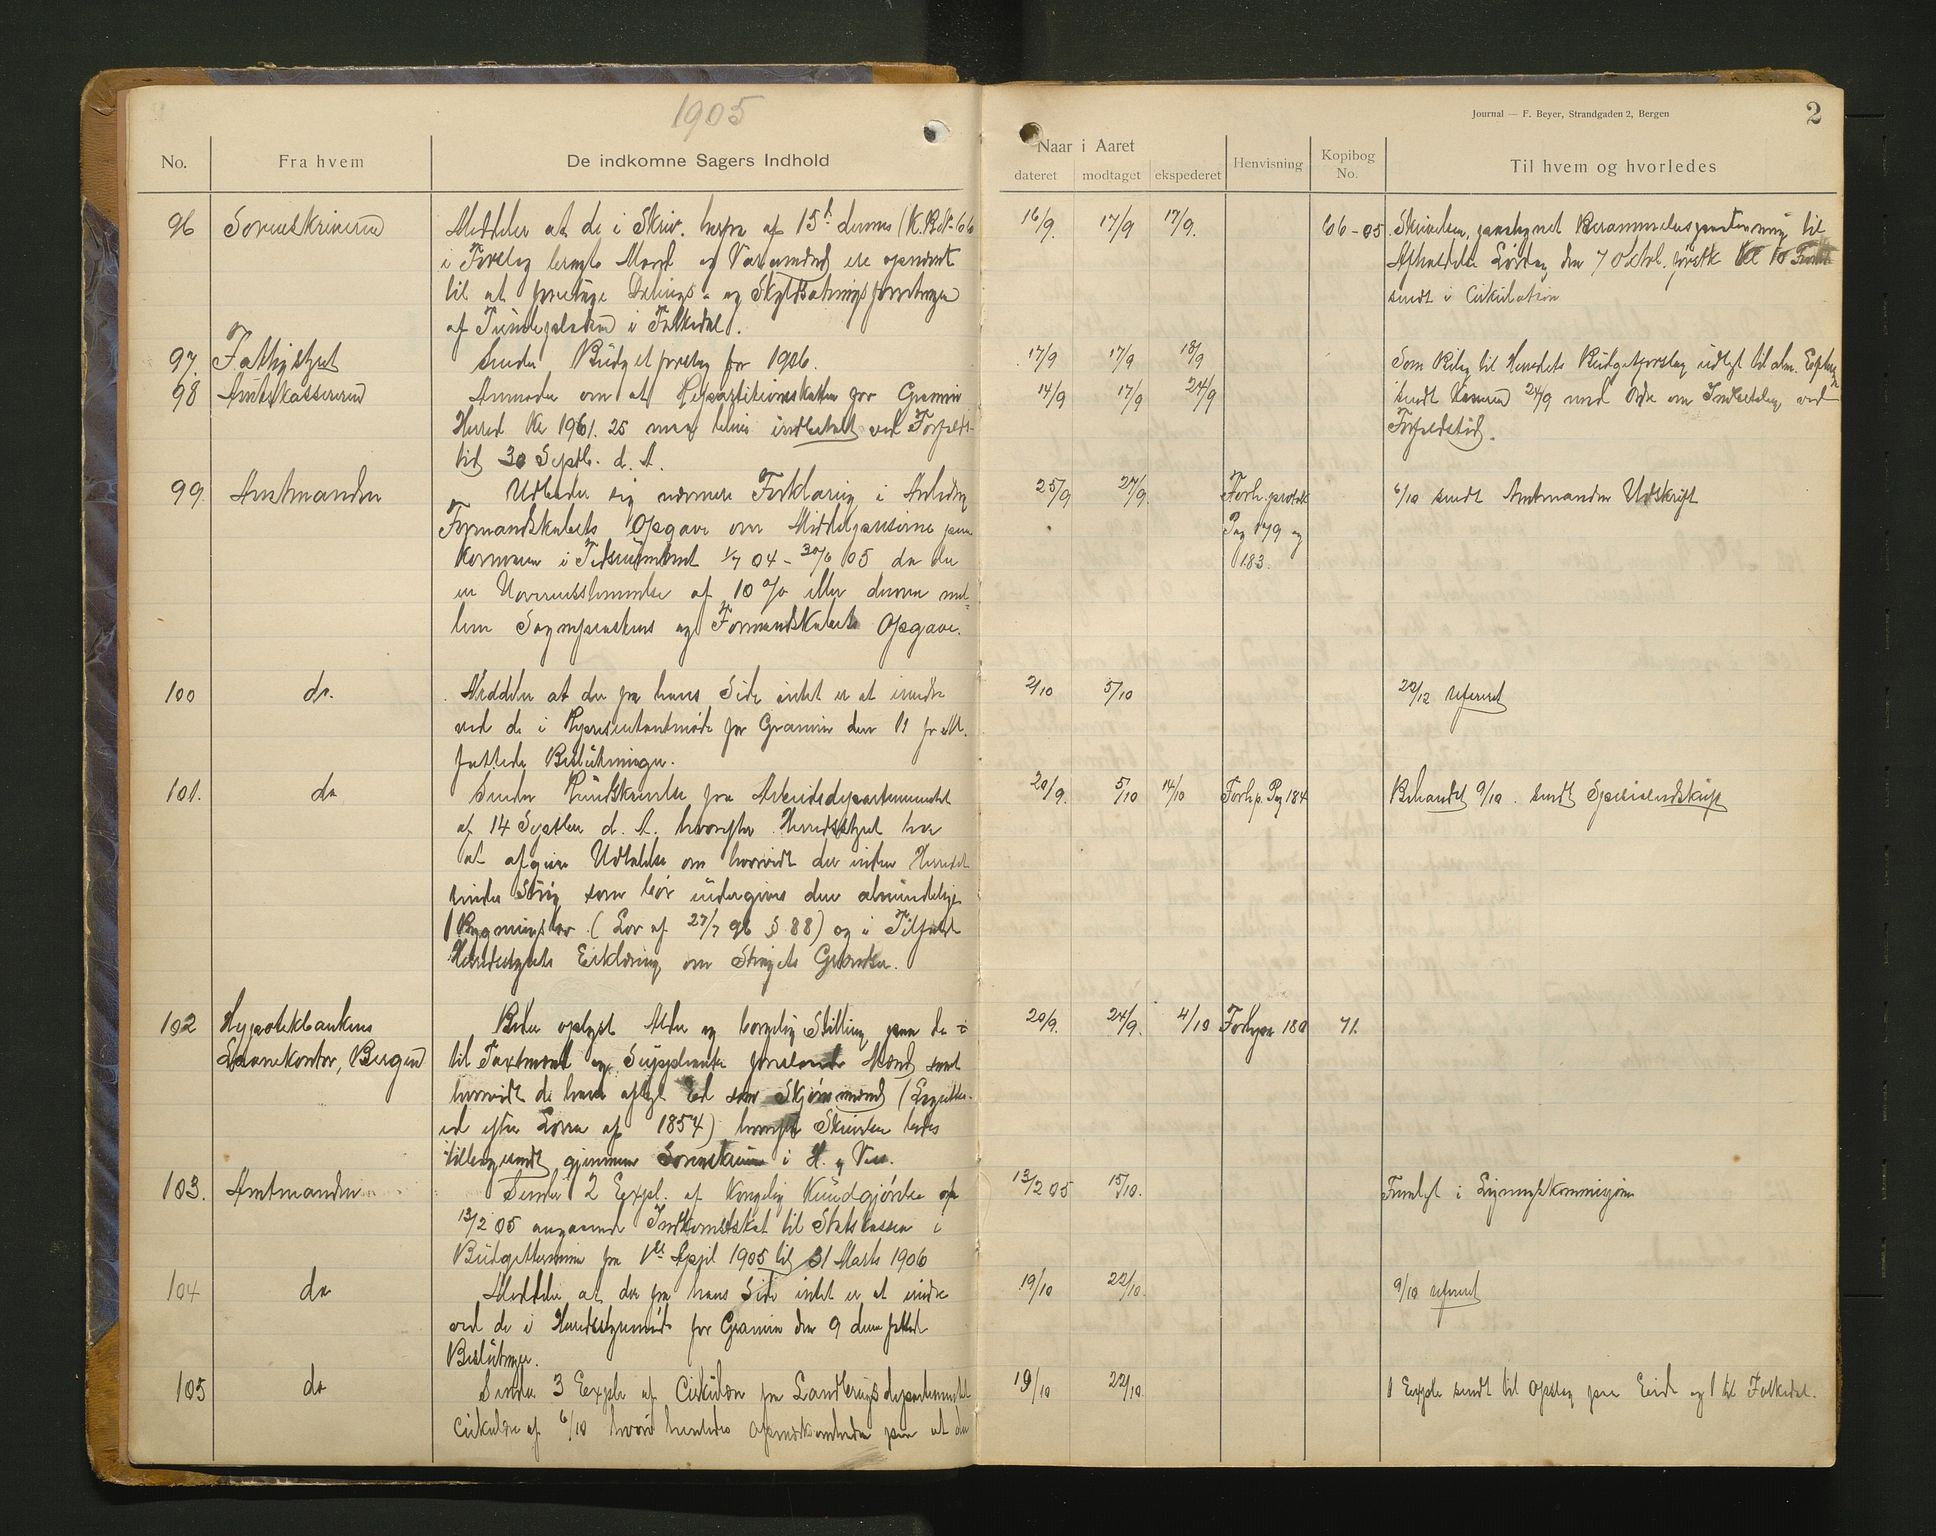 1905
Journal — F. Beyer, Strandgaden 2, Bergen
2
No.
Fra hvem
De indkomne Sagers Indhold
Naar i Aaret
dateret
modtaget
ekspederet
Henvisning
Kopibog No.
Til hvem og hvorledes
96 Sorenskriveren
Meddeler at de i Skriv. herfra af 15de dennes (K.B. N. 66
i Forslag bragte Mænd og Varamænd ere opnævnt
til at foretage Delings- og Skyldsætningsforretningen
af i Folkedal.
16/9. 17/9 17/9. 66-05
Skrivelsen, paategnet Berammelses til
Afholdelse Lørdag den 7 Oktob. førstk.
sendt i Cirkulation
97. Fattigstyret
Sender Budgetforslag for 1906.
17/9 17/9 18/9
Som Bilag til Herredets Budgetforslag udlagt til alm.
98 Amtskassereren
Anmoder om at Repartitionsskatten for Graven
Herred Kr 1961.25 maa blive indbetalt ved Forfalds-
tid 30 Septb. d. A.
14/9 17/9 24/9
sendt Kassereren 24/9 med Ordre om Indbetaling ved
Forfaldstid.
99. Amtmanden
Udbeder sig nærmere Forklaring i Anledng
Formandskabets Opgave over Middelpriserne paa
Kornvarer i Tidsrummet 1/7 04 - 30/6 05 da der
er Uoverensstemmelse af 10 % eller derover mel-
lem og Formandskabets Opgave.
25/9 27/9
Forh.protok
Pag 179 og
183.
6/10 sendt Amtmanden Udskrift
100 do.
Meddeler at der fra hans Side intet er at erindre
ved de i Repræsentantmøde for Graven den 11 f.
fattede Beslutninger.
2/10 5/10
22/12 refereret
101. do
Sender Rundskrivelse fra Arbeidsdepartementet
af 14 Septbr d. A. hvorefter Herredsstyret har
at afgive Udtalelse om hvorvidt der inden Herredet
findes Strøg som bør undergives den almindelige
Bygningslov (Lov af 27/7 96 § 88) og i Tilfælde
Herredsstyrets Erklæring om Strøgets Grænser.
20/9. 5/10 14/10 Forh.p. Pag 184
Behandlet 9/10. sendt
102 Hypotekbankens
Laanekontor, Bergen
Beder oplyst Alder og borgerlig Stilling paa de
til Taxtmænd og Suppleanter foreslaaede Mænd samt
hvorvidt de have aflagt Ed som Skjønsmænd
ed efter Loven af 1854) hvorefter Skrivelsen
gjennem Sorenskriver i H. og Voss.
20/9. 24/9. 4/10 180 71.
103. Amtmanden
Sender 2 Expl. af Kongelig Kundgjørelse af
13/2 05 angaaende Indkomstskat til Statskassen i
Budgetterminen fra 1ste April 1905 til 31 Marts 1906
13/2 05 15/10.
Fremlagt i Ligningskommissjonen
104 do
Meddeler at der fra hans Side intet er at erindre
ved de i Herredsstyremøde for Graven den 9 dennes fattede
Beslutninger.
19/10 22/10.
9/10 refereret
105 do
Sender 3 Explr af Cirkulære fra Landbrugsdepartementet
Cirkulære af 6/10 hvori henledes Opmærksomheden paa at der
19/10 22/10.
1 Expl. sendt til Opslag paa Eide og 1 til Folkedal.